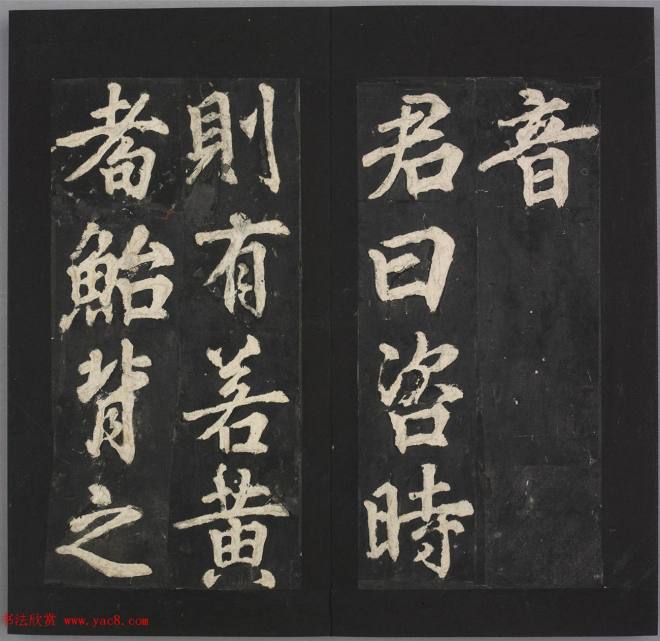 音
君曰咨時
則有若黃
耇鮐背之
书法欣赏 www.yac8.com